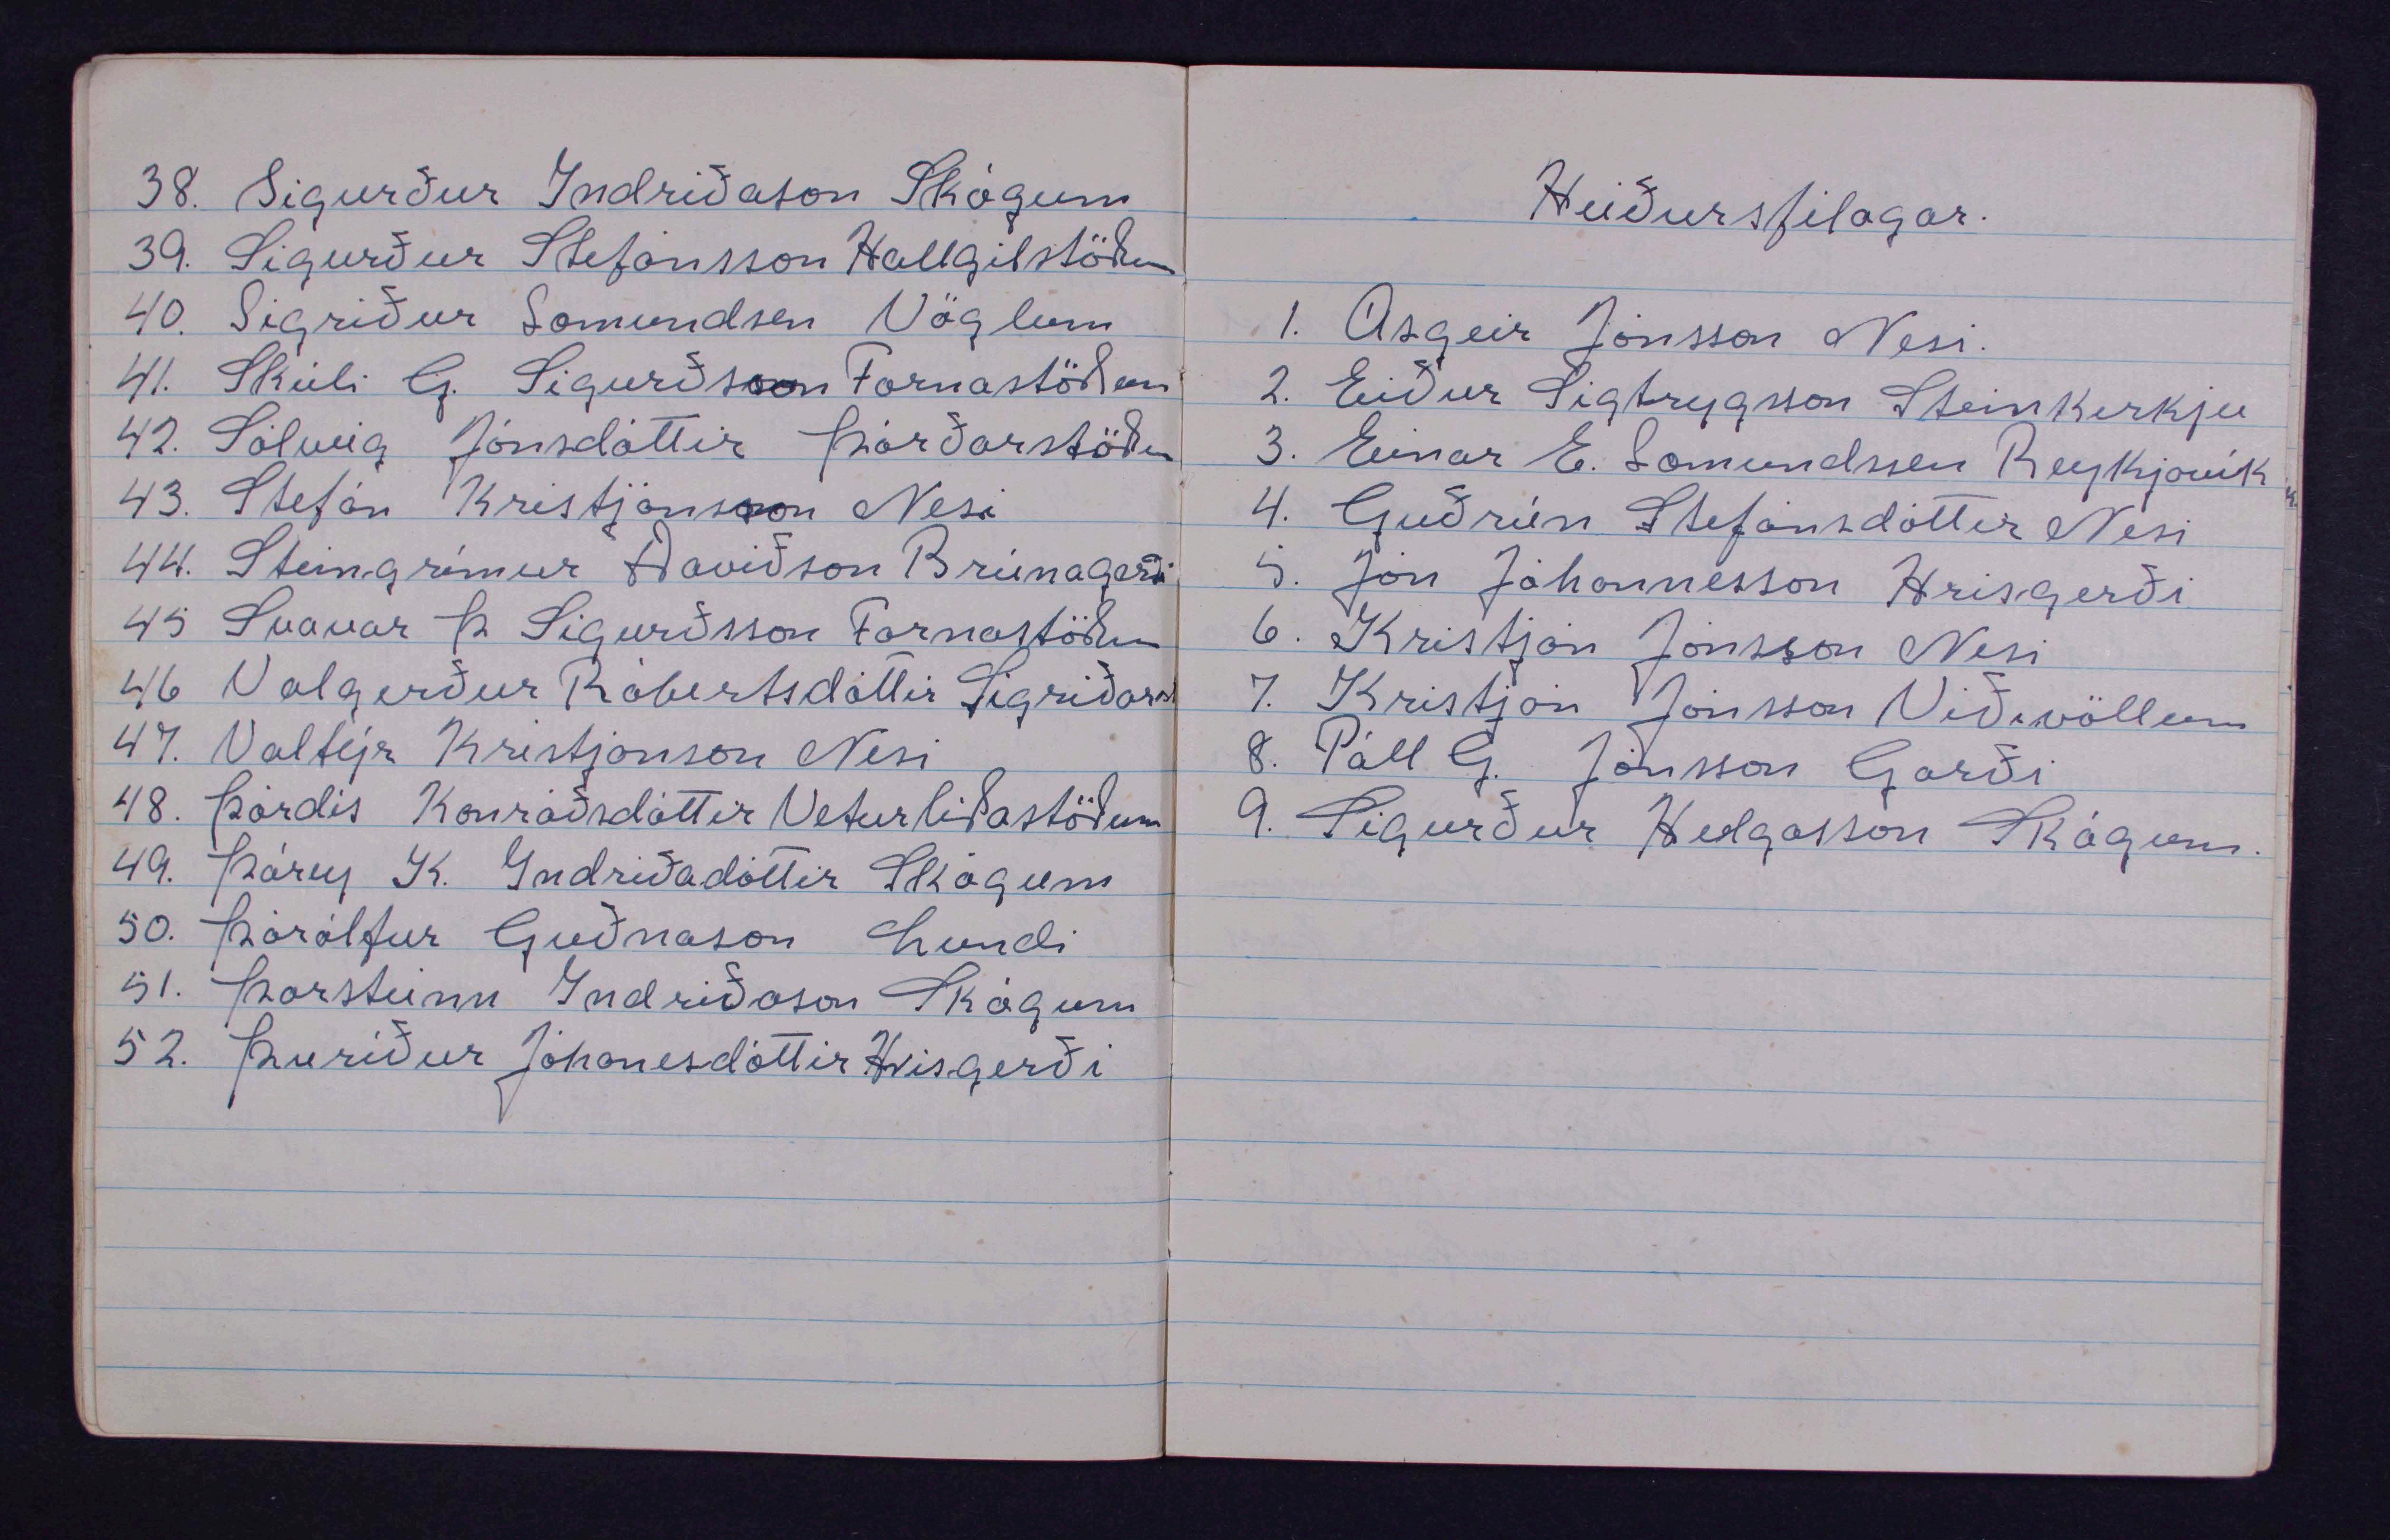 38. Sigurður Indriðason Skógum
39. Sigurður Stefánsson Hallgilstöðum
40. Sigríður Sæmundsen Vöglum
41. Skúli G. Sigurðsson Fornastöðum
42. Sólveig Jónsdóttir Þórðarstöðum
43. Stefán Kristjánsson Nesi
44. Steingrímur Davíðson Brúnagerði
45 Svavar Þ Sigurðsson Fornastöðum
46 Valgerður Róbertsdóttir Sigríðarst
47. Valtýr Kristjánson Nesi
48. Þórdís Konráðsdóttir Veturliðastöðum
49. Þórey K. Indriðadóttir Skógum
50. Þórólfur Guðnason Lundi
51. Þorsteinn Indriðason Skógum
52. Þuríður Jóhanesdóttir Hrísgerði
Heiðursfélagar.
1. Ásgeir Jónsson Nesi.
2. Eiður Sigtrygsson Steinkirkju
3. Einar E. Sæmundssen Reykjavík
4. Guðrún Stefánsdóttir Nesi
5. Jón Jóhannesson Hrísgerði
6. Kristján Jónsson Nesi
7. Kristján Jónsson Víðivöllum
8. Páll G. Jónsson Garði
9. Sigurður Helgasson Skógum.